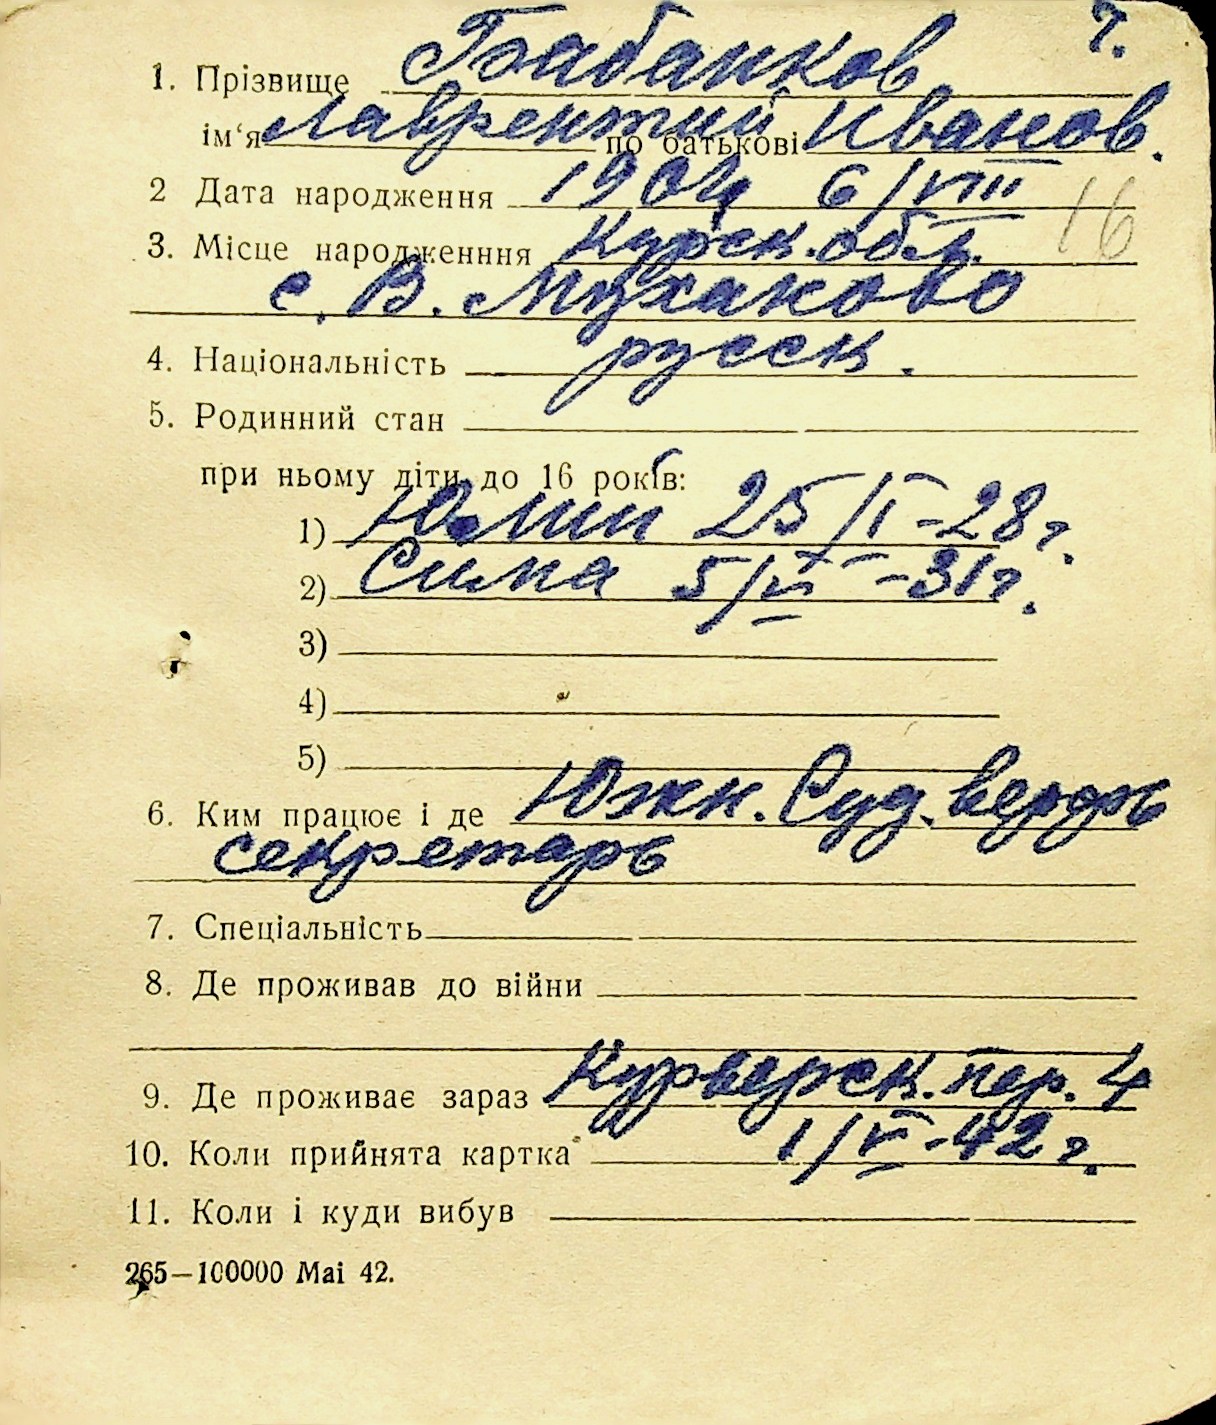 7.
1. Прізвище Бабанков
ім'я Лаврентий по батькові Иванов.
2 Дата народження 1904 6/VIII
16
3. Місце народженння Курск. обл.
с. В.
4. Національність русск.
5. Родинний стан
при ньому діти до 16 років:
1) Юлий 25/II-28 г.
2) Сима 5/VI-31 г.
3)
4)
5)
6. Ким працює і де Южн. Суд. верфь
секретарь
7. Спеціальність
8. Де проживав до війни
9. Де проживає зараз пер. 4
10. Коли прийнята картка 1/VI-42 г.
11. Коли і куди вибув
265—100000 Mai 42.